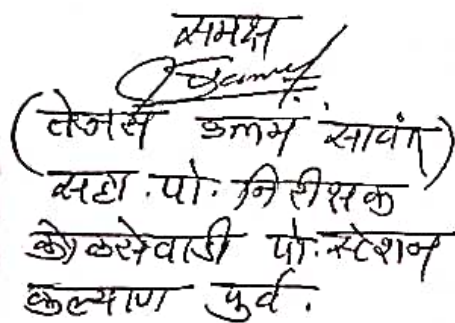 समक्ष
(तेजस उत्तम सावंत)
सहा. पो. निरीक्षक
कोळसेवाडी पो. स्टेशन
कल्याण पुर्व.